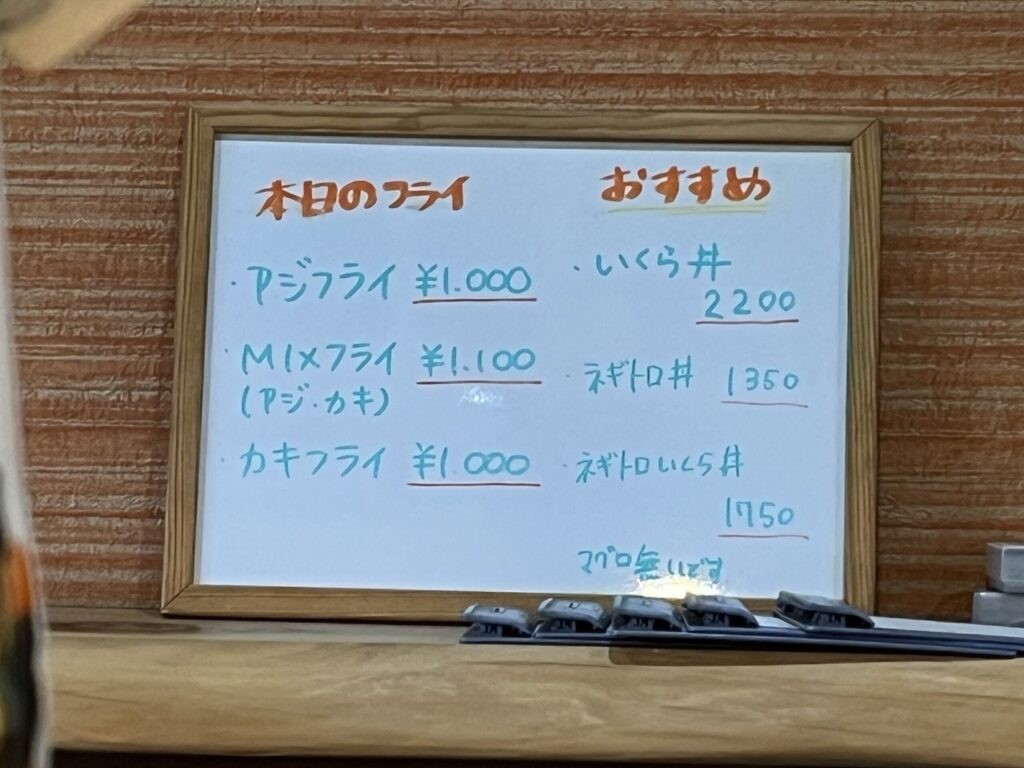 本日のフライ
・アジフライ ¥1.000
・MIXフライ ¥1.100
(アジ・カキ)
・カキフライ ¥1.000
おすすめ
・いくら丼
2200
・ネギトロ丼 1350
・ネギトロいくら丼
1750
マグロ無いです